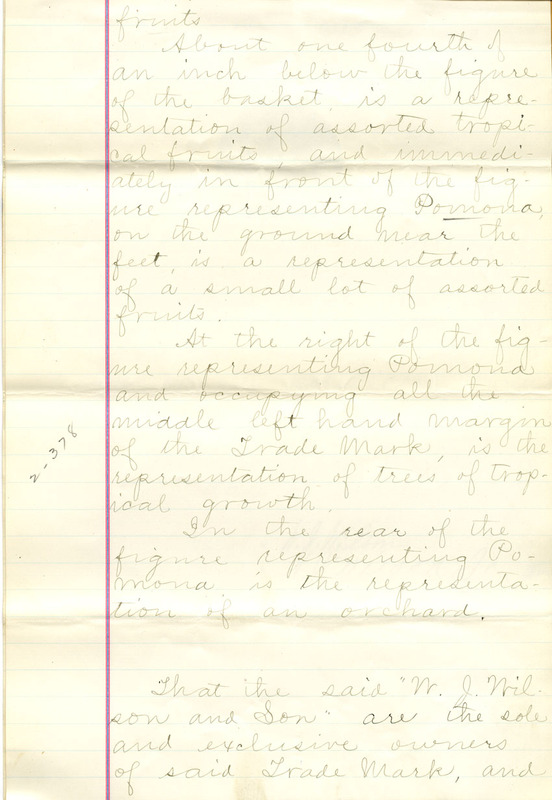 fruits
About one fourth of
an inch below the figure
of the basket, is a repre-
sentation of assorted tropi-
cal fruits, and immedi-
ately in front of the fig-
ure representing Pomona,
on the ground near the
feet, is a representation
of a small lot of assorted
fruits.
At the right of the fig-
ure representing Pomona
and occupying all the
middle left hand margin
of the Trade Mark, is the
representation of trees of trop-
ical growth.
In the rear of the
figure representing Po-
mona is the representa-
tion of an orchard.
That the said "W. J. Wil-
son and Son" are the sole
and exclusive owners
of said Trade Mark, and
2-378